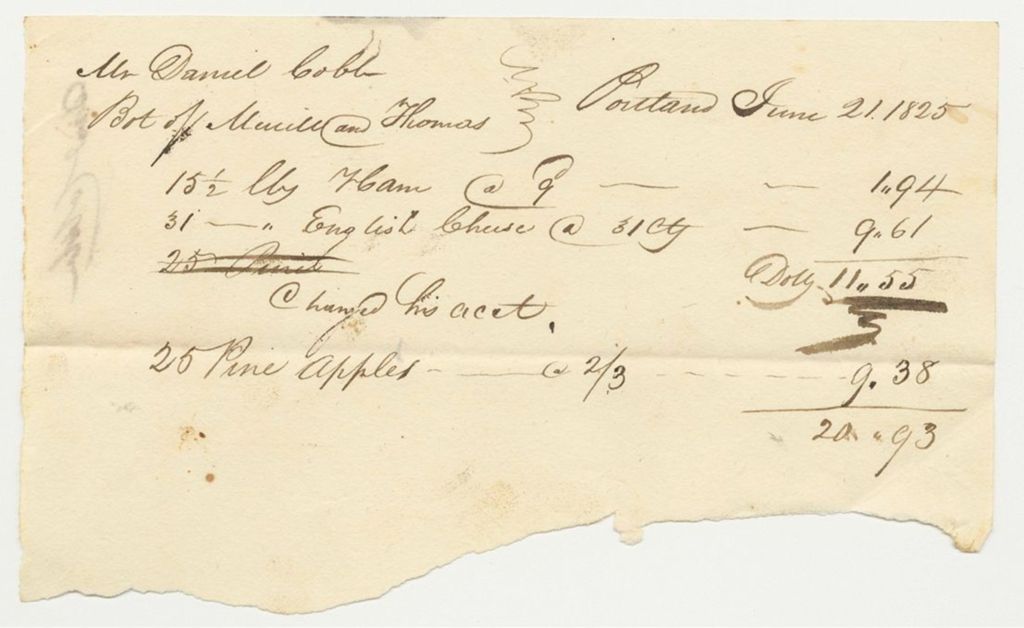 Mr Daniel Cobb
Bot of Merrill and Thomas
Portland June 21. 1825
15½ lbs Ham @ 9 — — 1„94
31 — „ English Cheese @ 31 cts — 9„61
25 Pine
Dolls 11„55
Charged his acct.
25 Pine apples - — @ 2/3 - - - - 9. 38
20 „ 93